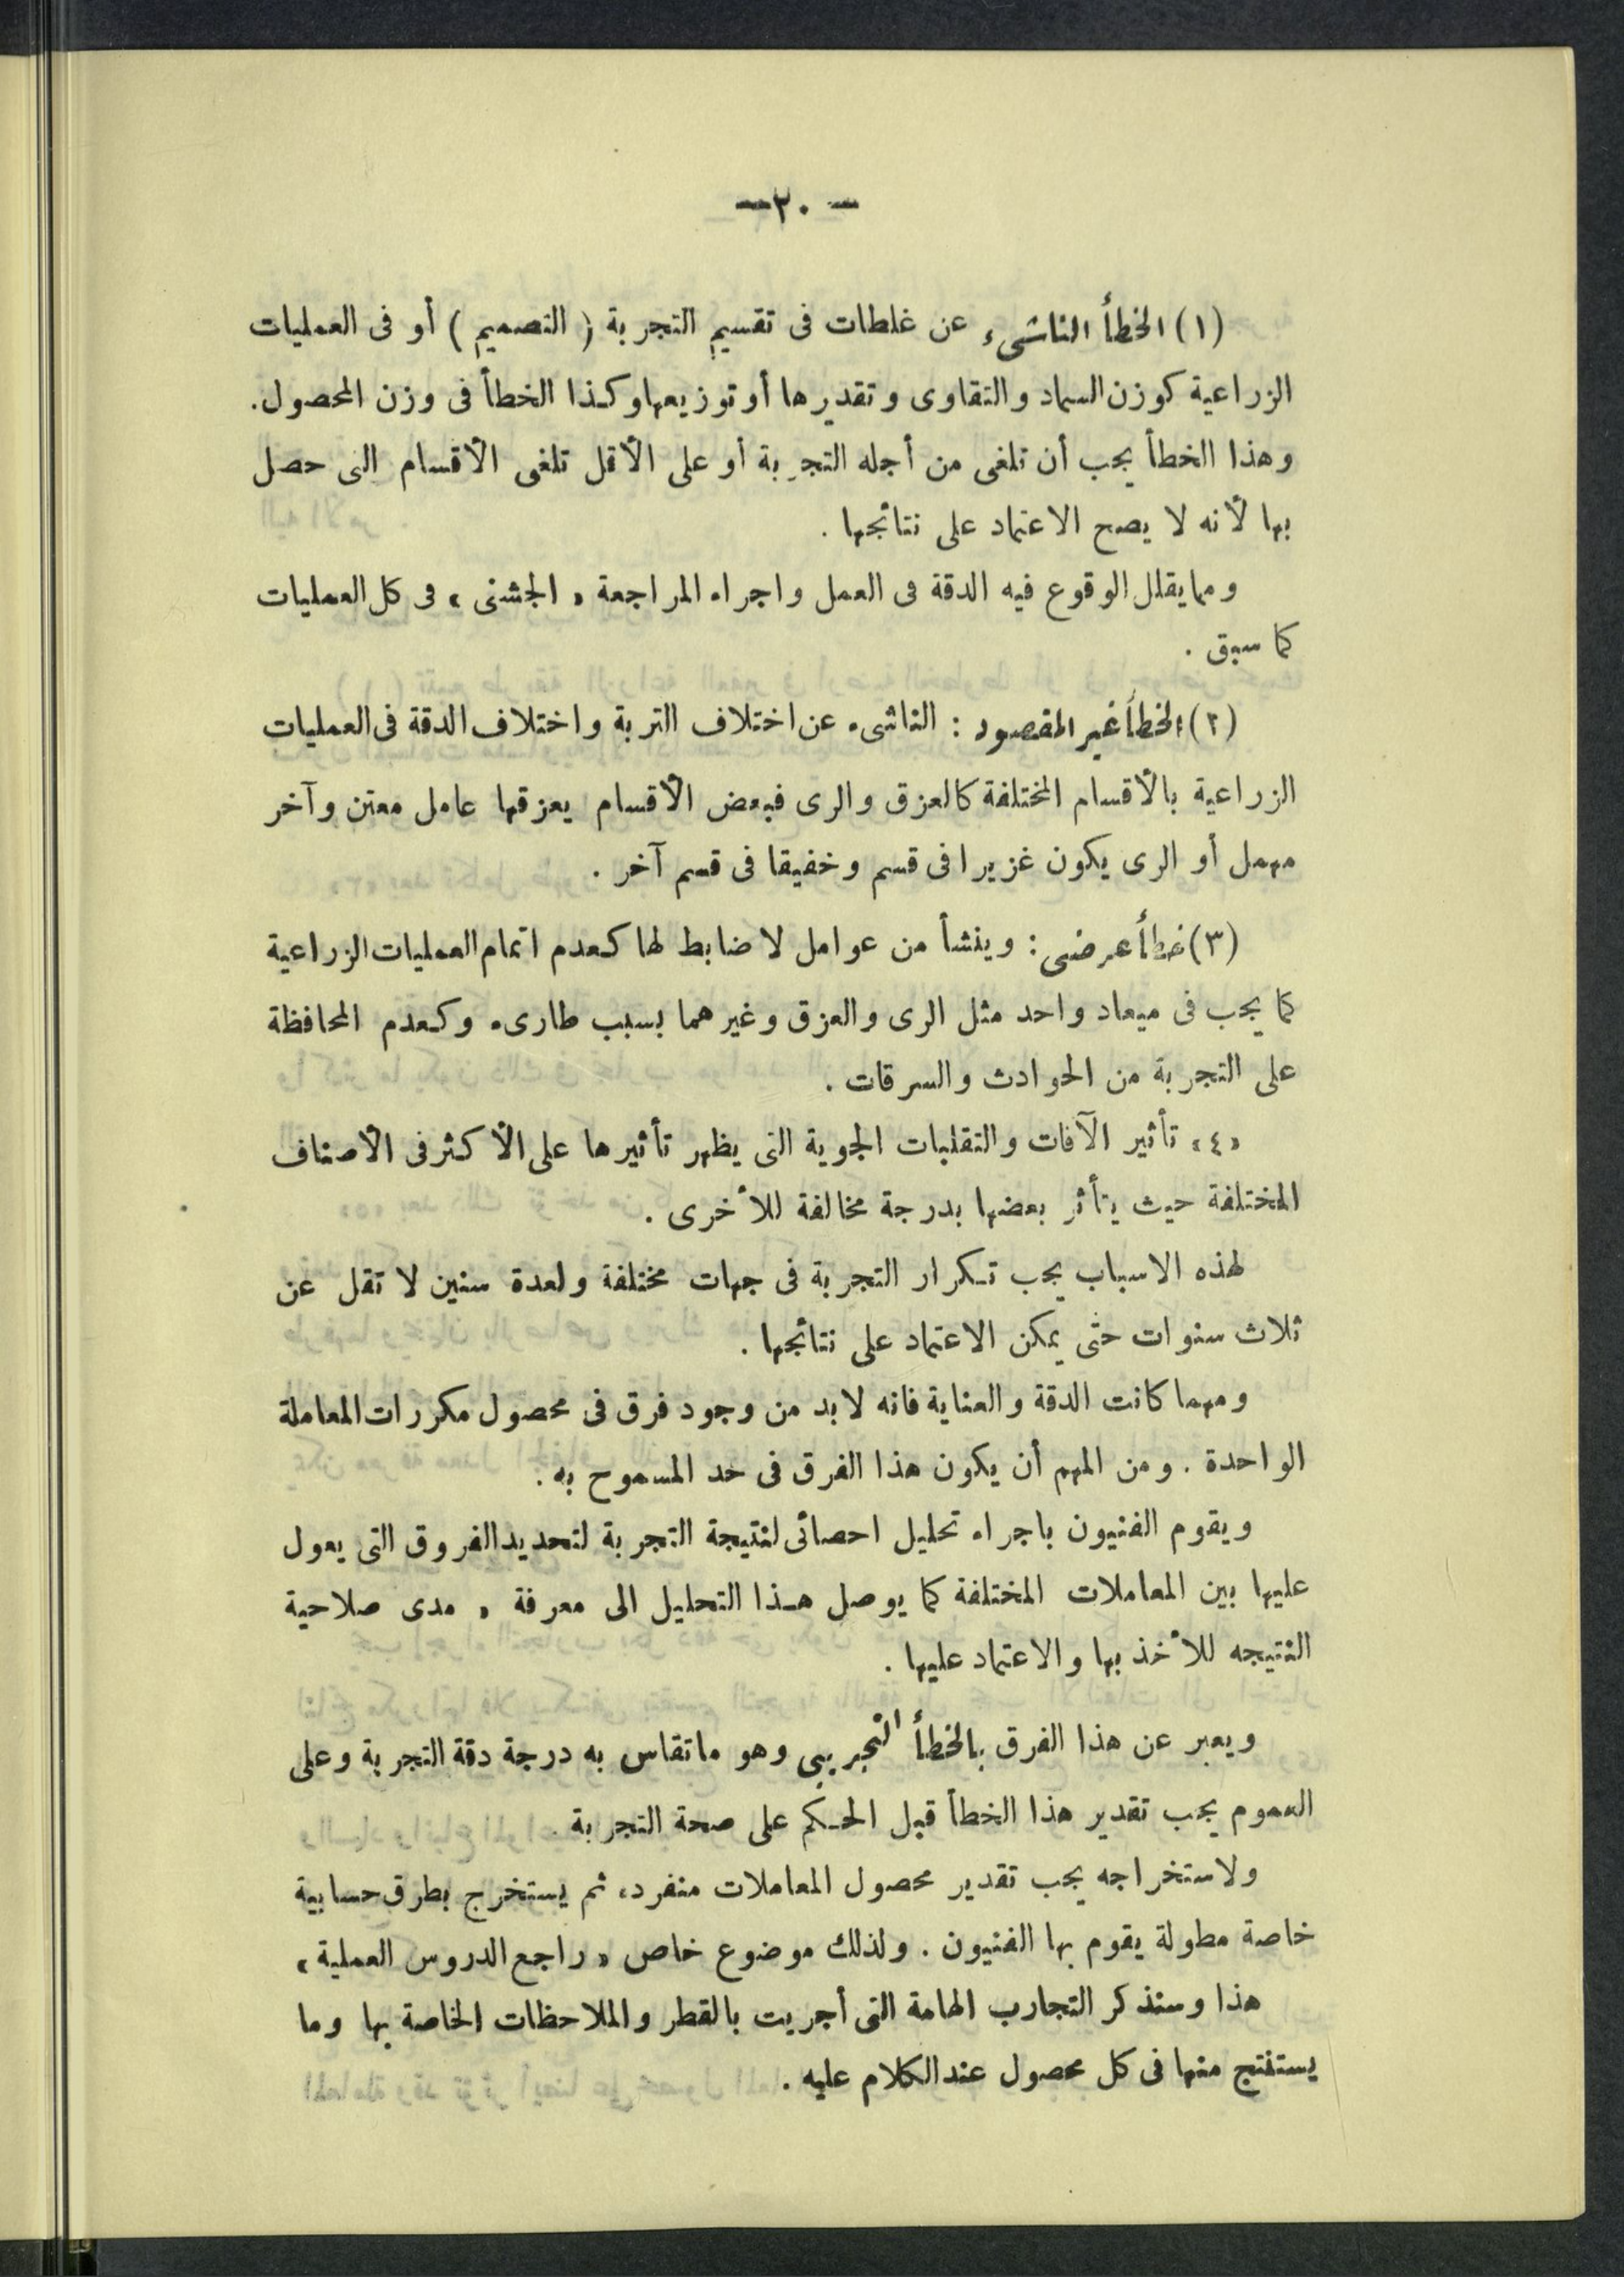 — ٢٠ —
(١) الخطأ الناشىء عن غلطات فى تقسيم التجربة ( التصميم ) أو فى العمليات
الزراعية كوزن السماد والتقاوى وتقديرها أو توزيعها وكذا الخطأ فى وزن المحصول .
وهذا الخطأ يجب أن تلغى من أجله التجربة أو على الأقل تلغى الأقسام التى حصل
بها لأنه لا يصح الاعتماد على نتائجها .
ومما يقلل الوقوع فيه الدقة فى العمل واجراء المراجعة « الجشنى » فى كل العمليات
كما سبق .
(٢) الخطأ غير المقصود : الناشىء عن اختلاف التربة واختلاف الدقة فى العمليات
الزراعية بالأقسام المختلفة كالعزق والرى فبعض الأقسام يعزقها عامل معتن وآخر
مهمل أو الرى يكون غزيرا فى قسم وخفيفا فى قسم آخر .
(٣) خطأ عرضى : وينشأ من عوامل لا ضابط لها كعدم اتمام العمليات الزراعية
كما يجب فى ميعاد واحد مثل الرى والعزق وغيرهما بسبب طارىء وكعدم المحافظة
على التجربة من الحوادث والسرقات .
«٤» تأثير الآفات والتقلبات الجوية التى يظهر تأثيرها على الأكثر فى الأصناف
المختلفة حيث يتأثر بعضها بدرجة مخالفة للأخرى .
لهذه الاسباب يجب تكرار التجربة فى جهات مختلفة ولعدة سنين لا تقل عن
ثلاث سنوات حتى يمكن الاعتماد على نتائجها .
ومهما كانت الدقة والعناية فانه لا بد من وجود فرق فى محصول مكررات المعاملة
الواحدة . ومن المهم أن يكون هذا الفرق فى حد المسموح به .
ويقوم الفنيون باجراء تحليل احصائى لنتيجة التجربة لتحديد الفروق التى يعول
عليها بين المعاملات المختلفة كما يوصل هذا التحليل الى معرفة « مدى صلاحية
النتيجه للأخذ بها والاعتماد عليها .
ويعبر عن هذا الفرق بالخطأ التجريبى وهو ماتقاس به درجة دقة التجربة وعلى
العموم يجب تقدير هذا الخطأ قبل الحكم على صحة التجربة .
ولاستخراجه يجب تقدير محصول المعاملات منفرد، ثم يستخرج بطرق حسابية
خاصة مطولة يقوم بها الفنيون . ولذلك موضوع خاص « راجع الدروس العملية »
هذا وسنذكر التجارب الهامة التى أجريت بالقطر والملاحظات الخاصة بها وما
يستنتج منها فى كل محصول عند الكلام عليه .